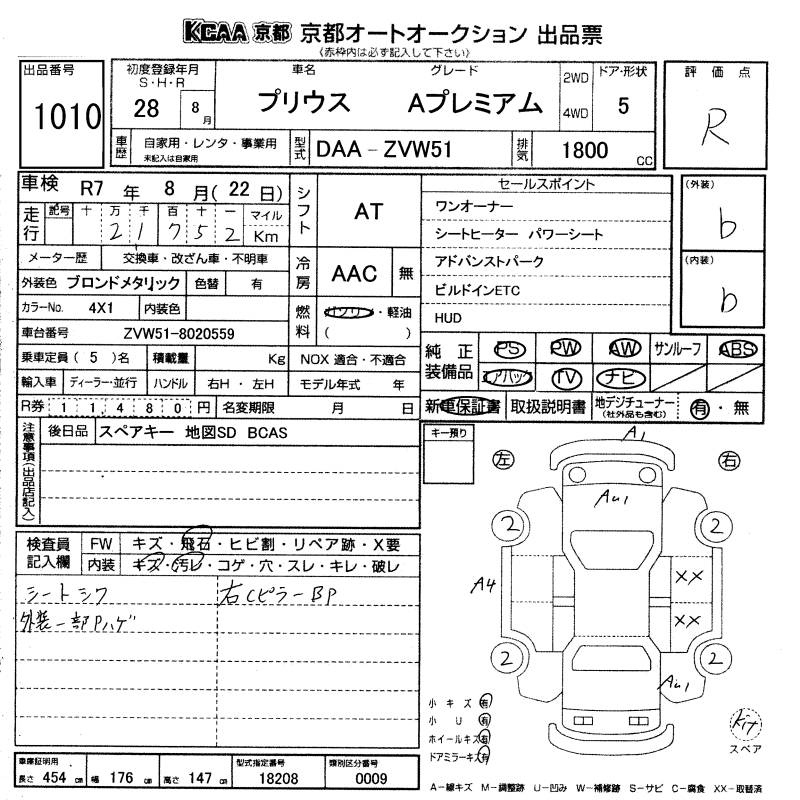 KCAA 京都 京都オートオークション 出品票
《赤枠内は必ず記入して下さい》
出品番号 1010
初度登録年月 S・H・R 28 8月
車名 プリウス
グレード Aプレミアム
2WD 4WD
ドア・形状 5
評価点 R
車歴 自家用・レンタ・事業用 未記入は自家用
型式 DAA-ZVW51
排気 1800 CC
車検 R7 年 8 月(22 日)
シフト AT
セールスポイント
ワンオーナー
シートヒーター パワーシート
アドバンストパーク
ビルドインETC
HUD
(外装) b
(内装) b
走行 記号 十 万 千 百 十 一 マイル
2 1 7 5 2 Km
メーター歴 交換車・改ざん車・不明車
冷房 AAC 無
外装色 ブロンドメタリック 色替 有
カラーNo. 4X1 内装色
燃料 ガソリン・軽油 ( )
車台番号 ZVW51-8020559
乗車定員 (5)名 積載量 Kg NOX 適合・不適合
輸入車 ディーラー・並行 ハンドル 右H・左H モデル年式 年
R券 11480円 名変期限 月 日
純正装備品 PS PW AW サンルーフ ABS
エアバック TV ナビ
新車保証書 取扱説明書 地デジチューナー (社外品も含む) 有・無
注意事項(出品店記入)
後日品 スペアキー 地図SD BCAS
キー預り
検査員記入欄 FW キズ・飛石・ヒビ割・リペア跡・X要
内装 キズ・汚レ・コゲ・穴・スレ・キレ・破レ
シートシワ 右Cピラー BP
外装一部Pハゲ
左 右
A1
AU1
2 2
A4 XX
XX
2 2
AU1
小キズ 有
小U 有
ホイールキズ 有
ドアミラーキズ 有
Kit
スペア
車庫証明用 長さ 454 cm 幅 176 cm 高さ 147 cm
型式指定番号 18208
類別区分番号 0009
A-線キズ M-調整跡 U-凹み W-補修跡 S-サビ C-腐食 XX-取替済